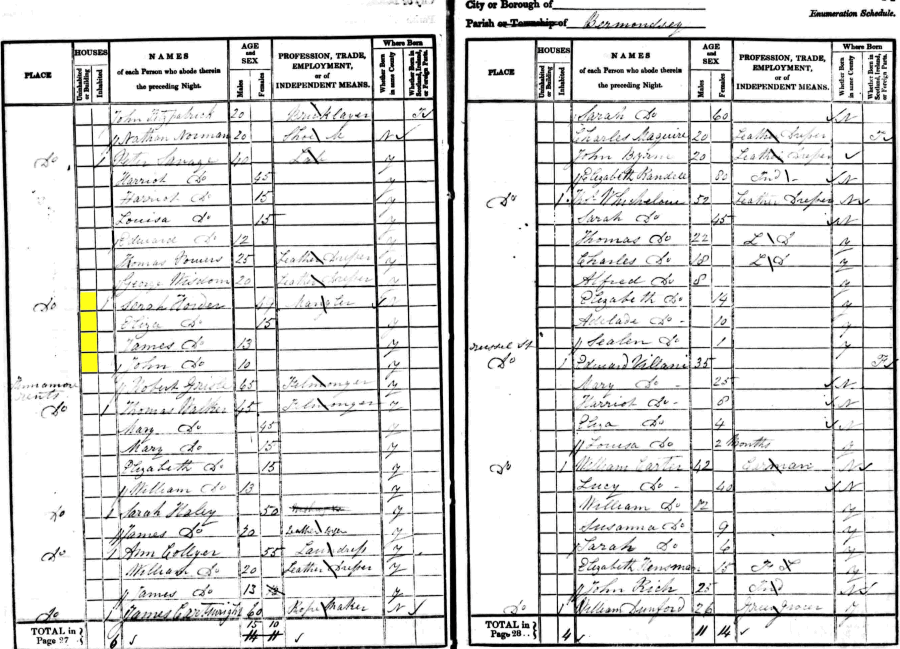 PLACE
HOUSES
Uninhabited or Building
Inhabited
NAMES
of each Person who abode therein
the preceding Night.
AGE
and
SEX
Males
Females
PROFESSION, TRADE,
EMPLOYMENT,
or of
INDEPENDENT MEANS.
Where Born
Whether Born in same County
Whether Born in Scotland, Ireland, or Foreign Parts.
John Fitzpatrick 20 Bricklayer
Nathan Norman 20 Shoe M N
Do 1 Peter Savage 40 Lab y
Harriot Do 45 y
Harriot Do 15 y
Louisa Do 15 y
Edward Do 12 y
Thomas Powers 25 Leather Dresser y
George Wisdom 20 Leather Dresser y
Do 1 Sarah 49 N
Eliza Do 15 y
James Do 13 y
John Do 10 y
Rents Robert 65 Felmonger y
Do 1 Thomas Walker 45 Felmonger y
Mary Do 45
Mary Do 15 y
Elizabeth Do 15 y
William Do 13 y
Do 1 Sarah Haley 50 y
James Do 20 y
Do 1 Ann Collyer 55 Laundress y
William Do 20 Leather Dresser y
James Do 13 y
Do 1 James Cartwright 60 Rope Maker N
15 10
TOTAL in
Page 27 6
City or Borough of
Parish or Township of Bermondsey
Enumeration Schedule.
PLACE
HOUSES
Uninhabited or Building
Inhabited
NAMES
of each Person who abode therein
the preceding Night.
AGE
and
SEX
Males
Females
PROFESSION, TRADE,
EMPLOYMENT,
or of
INDEPENDENT MEANS.
Where Born
Whether Born in same County
Whether Born in Scotland, Ireland, or Foreign Parts.
Sarah Do 60 N
Charles Maguire 20 Leather Dresser
John 20 Leather Dresser
Elizabeth Randell 80 Ind N
Do 1 Whichelow 52 Leather Dresser N
Sarah Do 45 N
Thomas Do 22 L D y
Charles Do 18 L D y
Alfred Do 8 y
Elizabeth Do 14 y
Adelade Do 10 y
Do 1 y
St
Do 1 Edward Villani 35
Mary Do 25 N
Harriot Do 8 N
Eliza Do 4 N
Louisa Do 2 Months y
Do 1 William Carter 42 Carman N
Lucy Do 40 N
William Do 12 y
Susanna Do 9 y
Sarah Do 6 y
Elizabeth 15 y
John Rich 25 Ind N
Do 1 William Dunford 26 Green Grocer y
TOTAL in
Page 28 4 11 14